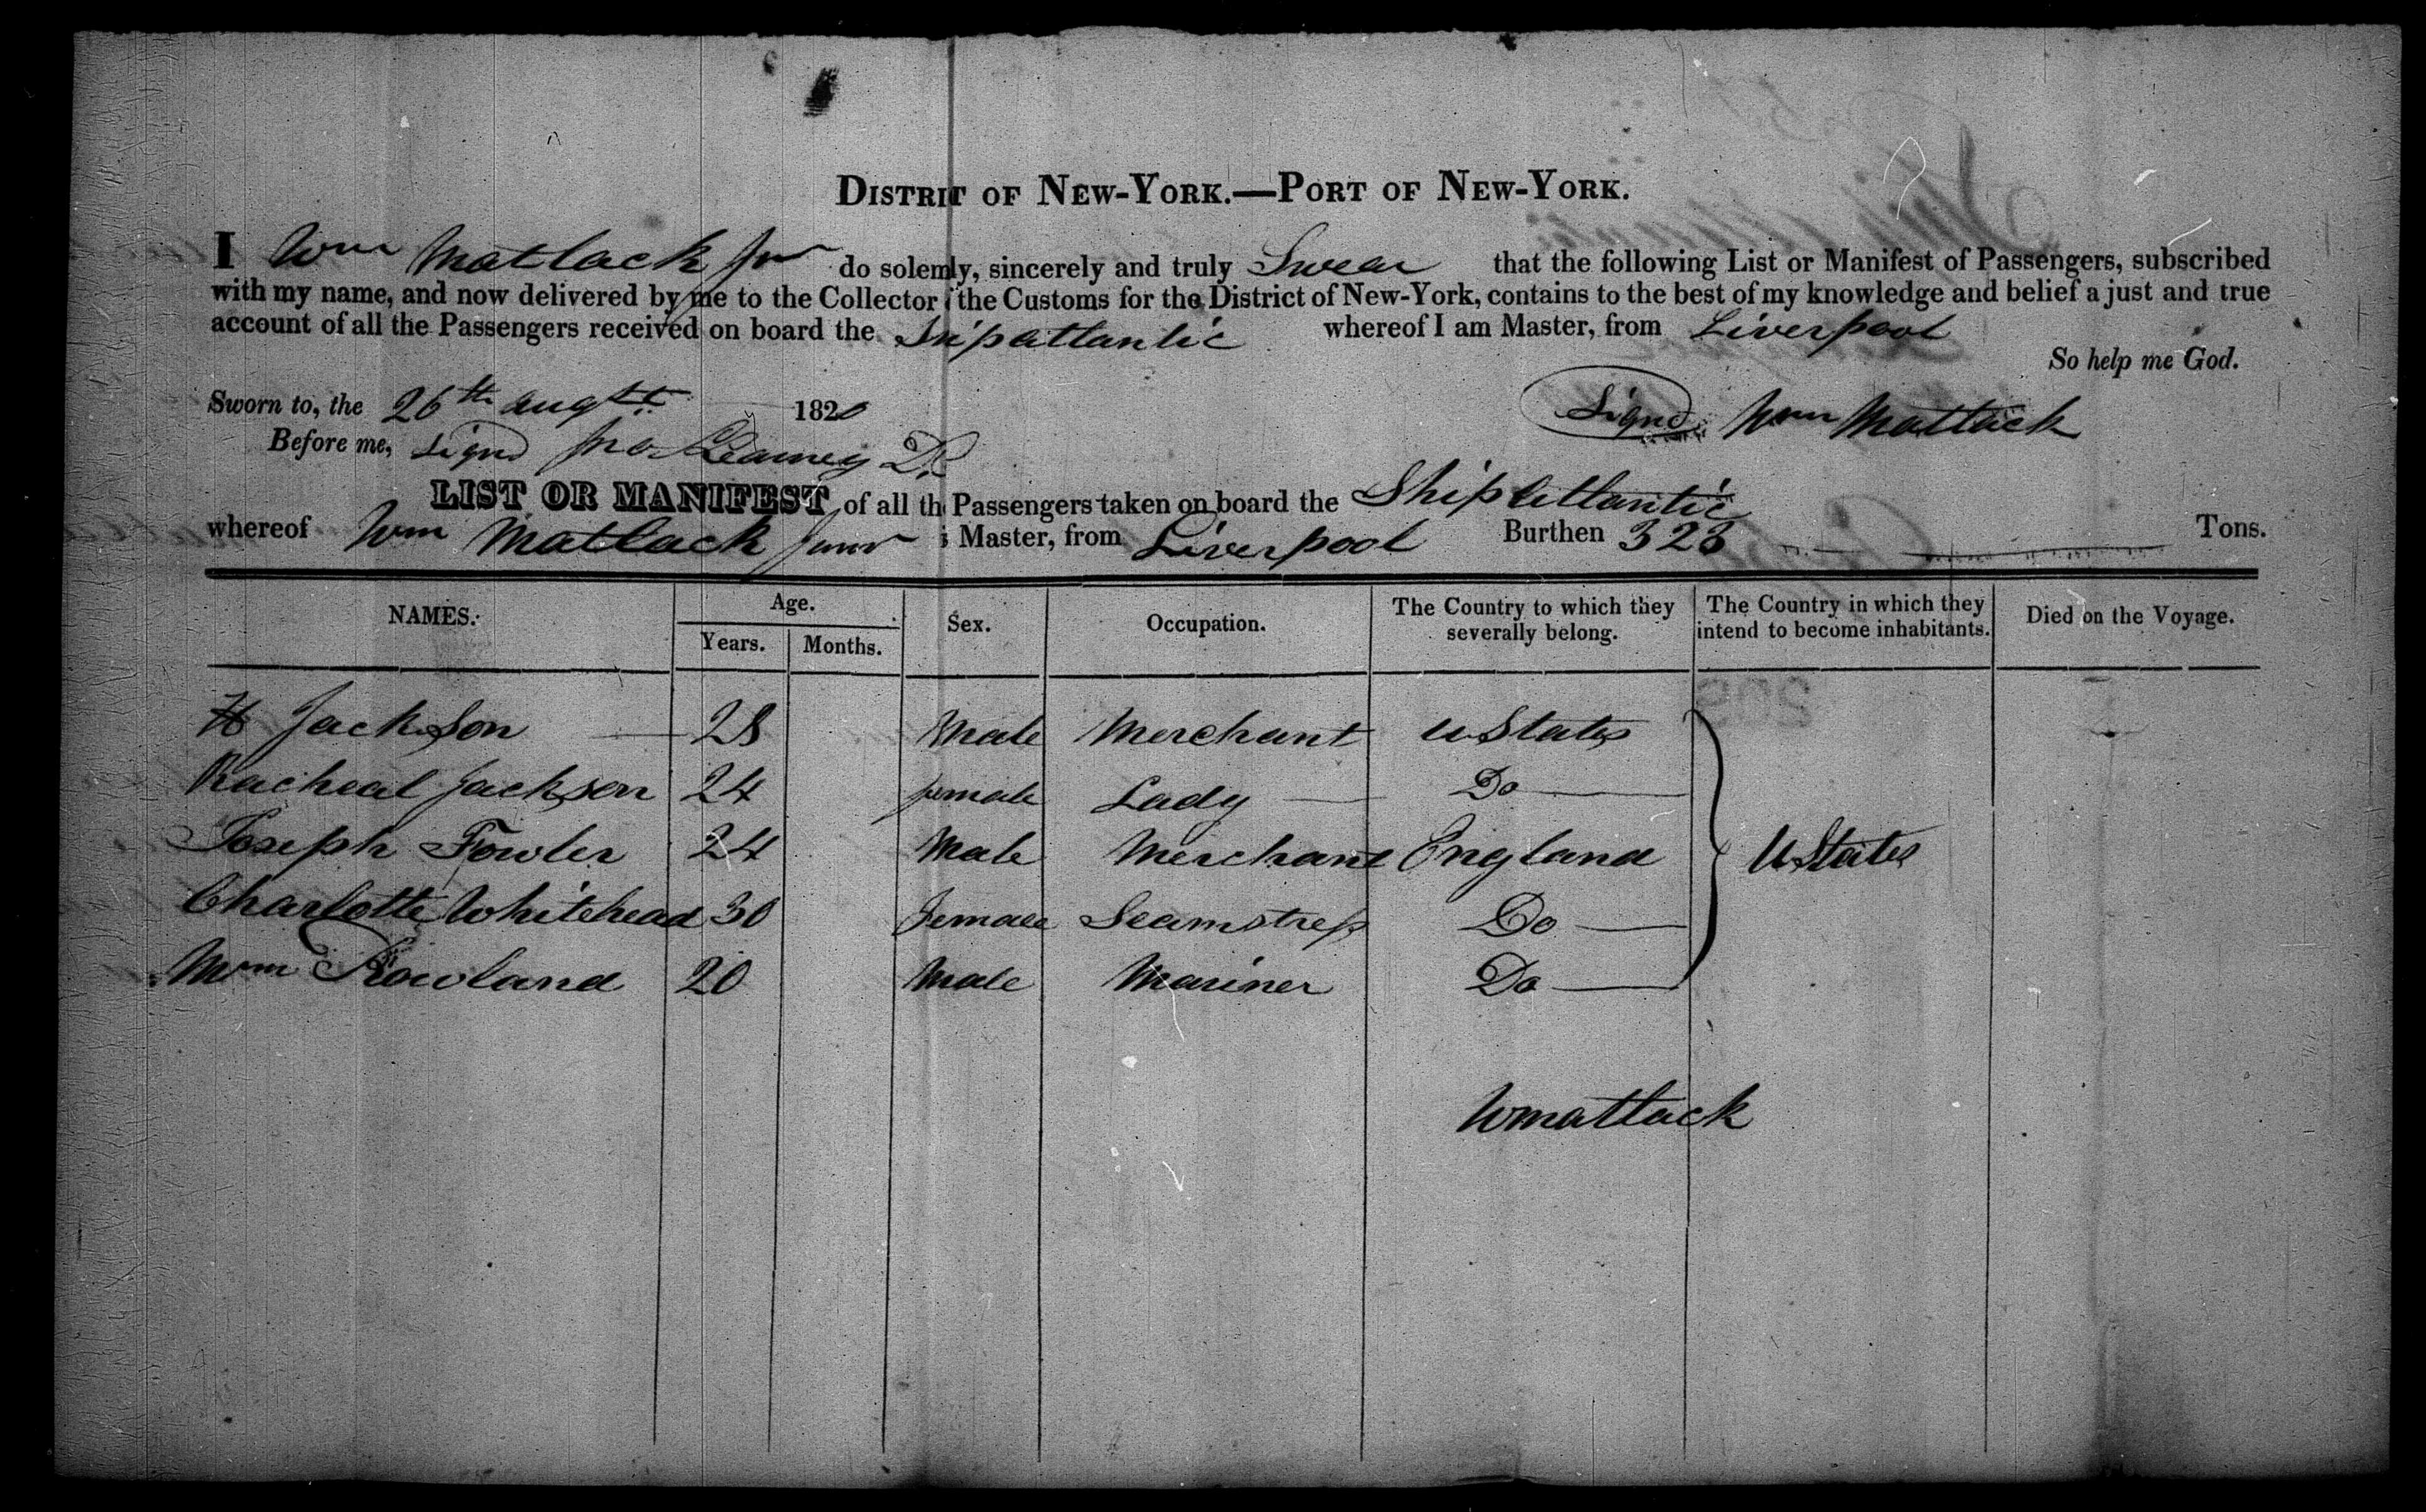 DISTRICT OF NEW-YORK.—PORT OF NEW-YORK.
I Wm Matlack Jnr do solemly, sincerely and truly Swear that the following List or Manifest of Passengers, subscribed
with my name, and now delivered by me to the Collector the Customs for the District of New-York, contains to the best of my knowledge and belief a just and true
account of all the Passengers received on board the Ship atlantic whereof I am Master, from Liverpool
So help me God.
Sworn to, the 26th augt 1820 Signd Wm Matlack
Before me, Signd Jno
LIST OR MANIFEST of all th Passengers taken on board the Ship atlantic
whereof Wm Matlack Junr is Master, from Liverpool Burthen 323 Tons.
NAMES. Age. Years. Months. Sex. Occupation. The Country to which they severally belong. The Country in which they intend to become inhabitants. Died on the Voyage.
H Jackson 28 Male Merchant U States
Racheal Jackson 24 female Lady Do
Joseph Fowler 24 Male Merchant England U States
Charlotte Whitehead 30 female Seamstress Do
Wm Rowland 20 Male Mariner Do
W Matlack